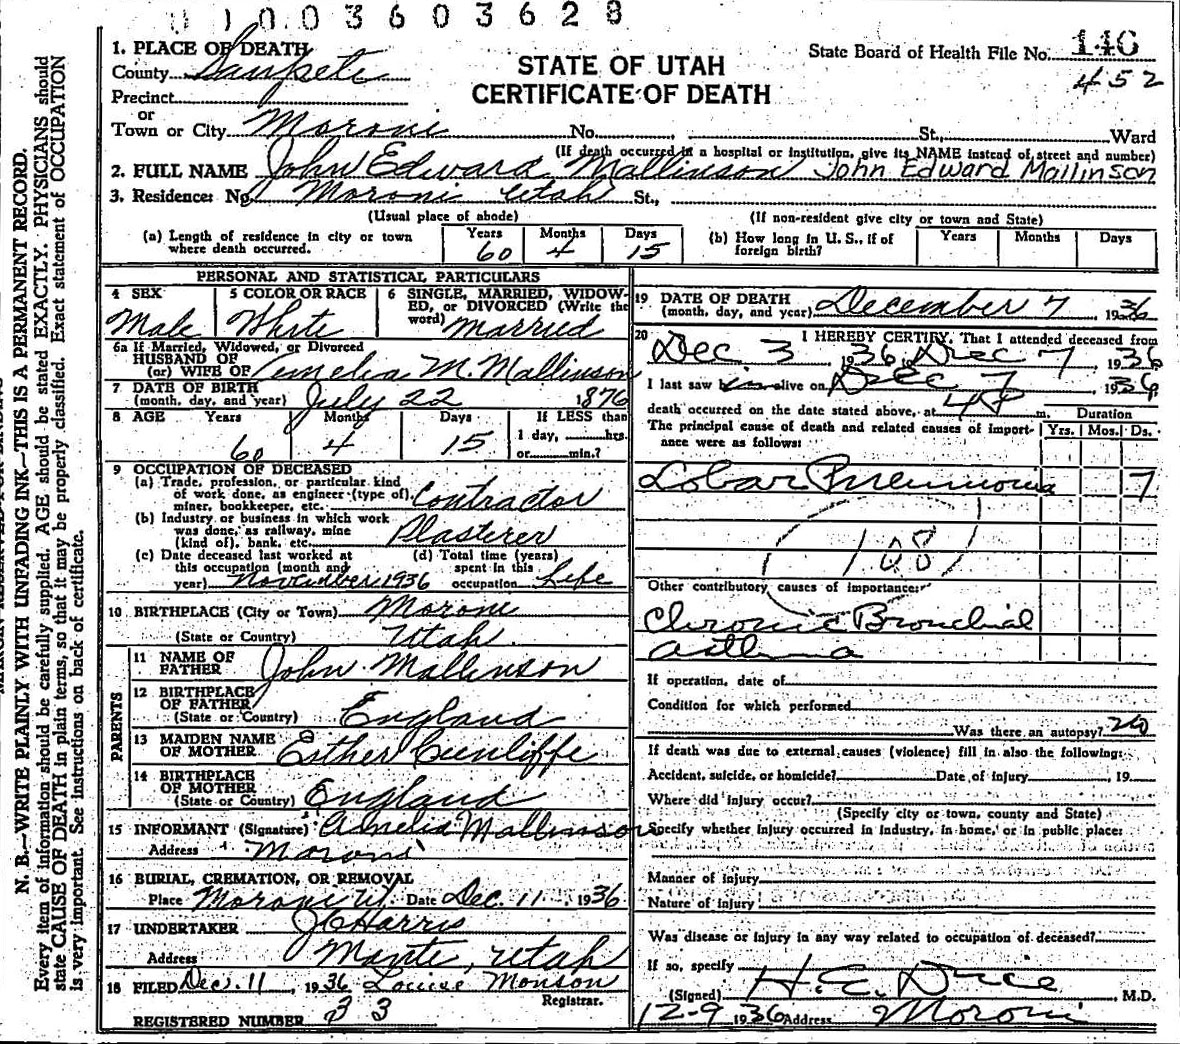 0 1 0 0 3 6 0 3 6 2 8
1. PLACE OF DEATH
County Sanpete
Precinct
or
Town or City Moroni No. St., Ward
STATE OF UTAH
CERTIFICATE OF DEATH
State Board of Health File No. 146
452
(If death occurred in a hospital or institution, give its NAME instead of street and number)
2. FULL NAME John Edward Mallinson John Edward Mallinson
3. Residence: No. Moroni Utah St.,
(Usual place of abode) (If non-resident give city or town and State)
(a) Length of residence in city or town where death occurred. Years 60 Months 4 Days 15
(b) How long in U. S., if of foreign birth? Years Months Days
PERSONAL AND STATISTICAL PARTICULARS
4 SEX Male
5 COLOR OR RACE White
6 SINGLE, MARRIED, WIDOWED, or DIVORCED (Write the word) Married
6a If Married, Widowed, or Divorced
HUSBAND OF
(or) WIFE OF Amelia M. Mallinson
7 DATE OF BIRTH
(month, day, and year) July 22 1876
8 AGE Years 60 Months 4 Days 15
If LESS than
1 day, hrs.
or min.?
9 OCCUPATION OF DECEASED
(a) Trade, profession, or particular kind
of work done, as engineer (type of)
miner, bookkeeper, etc. Contractor
(b) Industry or business in which work
was done, as railway, mine
(kind of), bank, etc. Plasterer
(c) Date deceased last worked at
this occupation (month and
year) November 1936
(d) Total time (years)
spent in this
occupation Life
10 BIRTHPLACE (City or Town) Moroni
(State or Country) Utah
PARENTS
11 NAME OF
FATHER John Mallinson
12 BIRTHPLACE
OF FATHER
(State or Country) England
13 MAIDEN NAME
OF MOTHER Esther Cunliffe
14 BIRTHPLACE
OF MOTHER
(State or Country) England
15 INFORMANT (Signature) Amelia Mallinson
Address Moroni
16 BURIAL, CREMATION, OR REMOVAL
Place Moroni Ut. Date Dec. 11 1936
17 UNDERTAKER J C Harris
Address Mante, Utah
18 FILED Dec. 11, 1936 Louise Monson
Registrar.
REGISTERED NUMBER 33
19 DATE OF DEATH
(month, day, and year) December 7, 1936
20 I HEREBY CERTIFY, That I attended deceased from
Dec 3 1936 to Dec 7, 1936
I last saw him alive on Dec 7, 1936
death occurred on the date stated above, at 4 P m. Duration
The principal cause of death and related causes of importance were as follows: Yrs. Mos. Ds.
Lobar Pneumonia 7
108
Other contributory causes of importance:
Chronic Bronchial
Asthma
If operation, date of
Condition for which performed
Was there an autopsy? no
If death was due to external causes (violence) fill in also the following:
Accident, suicide, or homicide? Date of injury , 19
Where did injury occur?
(Specify city or town, county and State)
Specify whether injury occurred in industry, in home, or in public place:
Manner of injury
Nature of injury
Was disease or injury in any way related to occupation of deceased?
If so, specify
(Signed) , M.D.
12-9 1936 Address Moroni
N. B.—WRITE PLAINLY WITH UNFADING INK—THIS IS A PERMANENT RECORD.
Every item of information should be carefully supplied. AGE should be stated EXACTLY. PHYSICIANS should
state CAUSE OF DEATH in plain terms, so that it may be properly classified. Exact statement of OCCUPATION
is very important. See instructions on back of certificate.